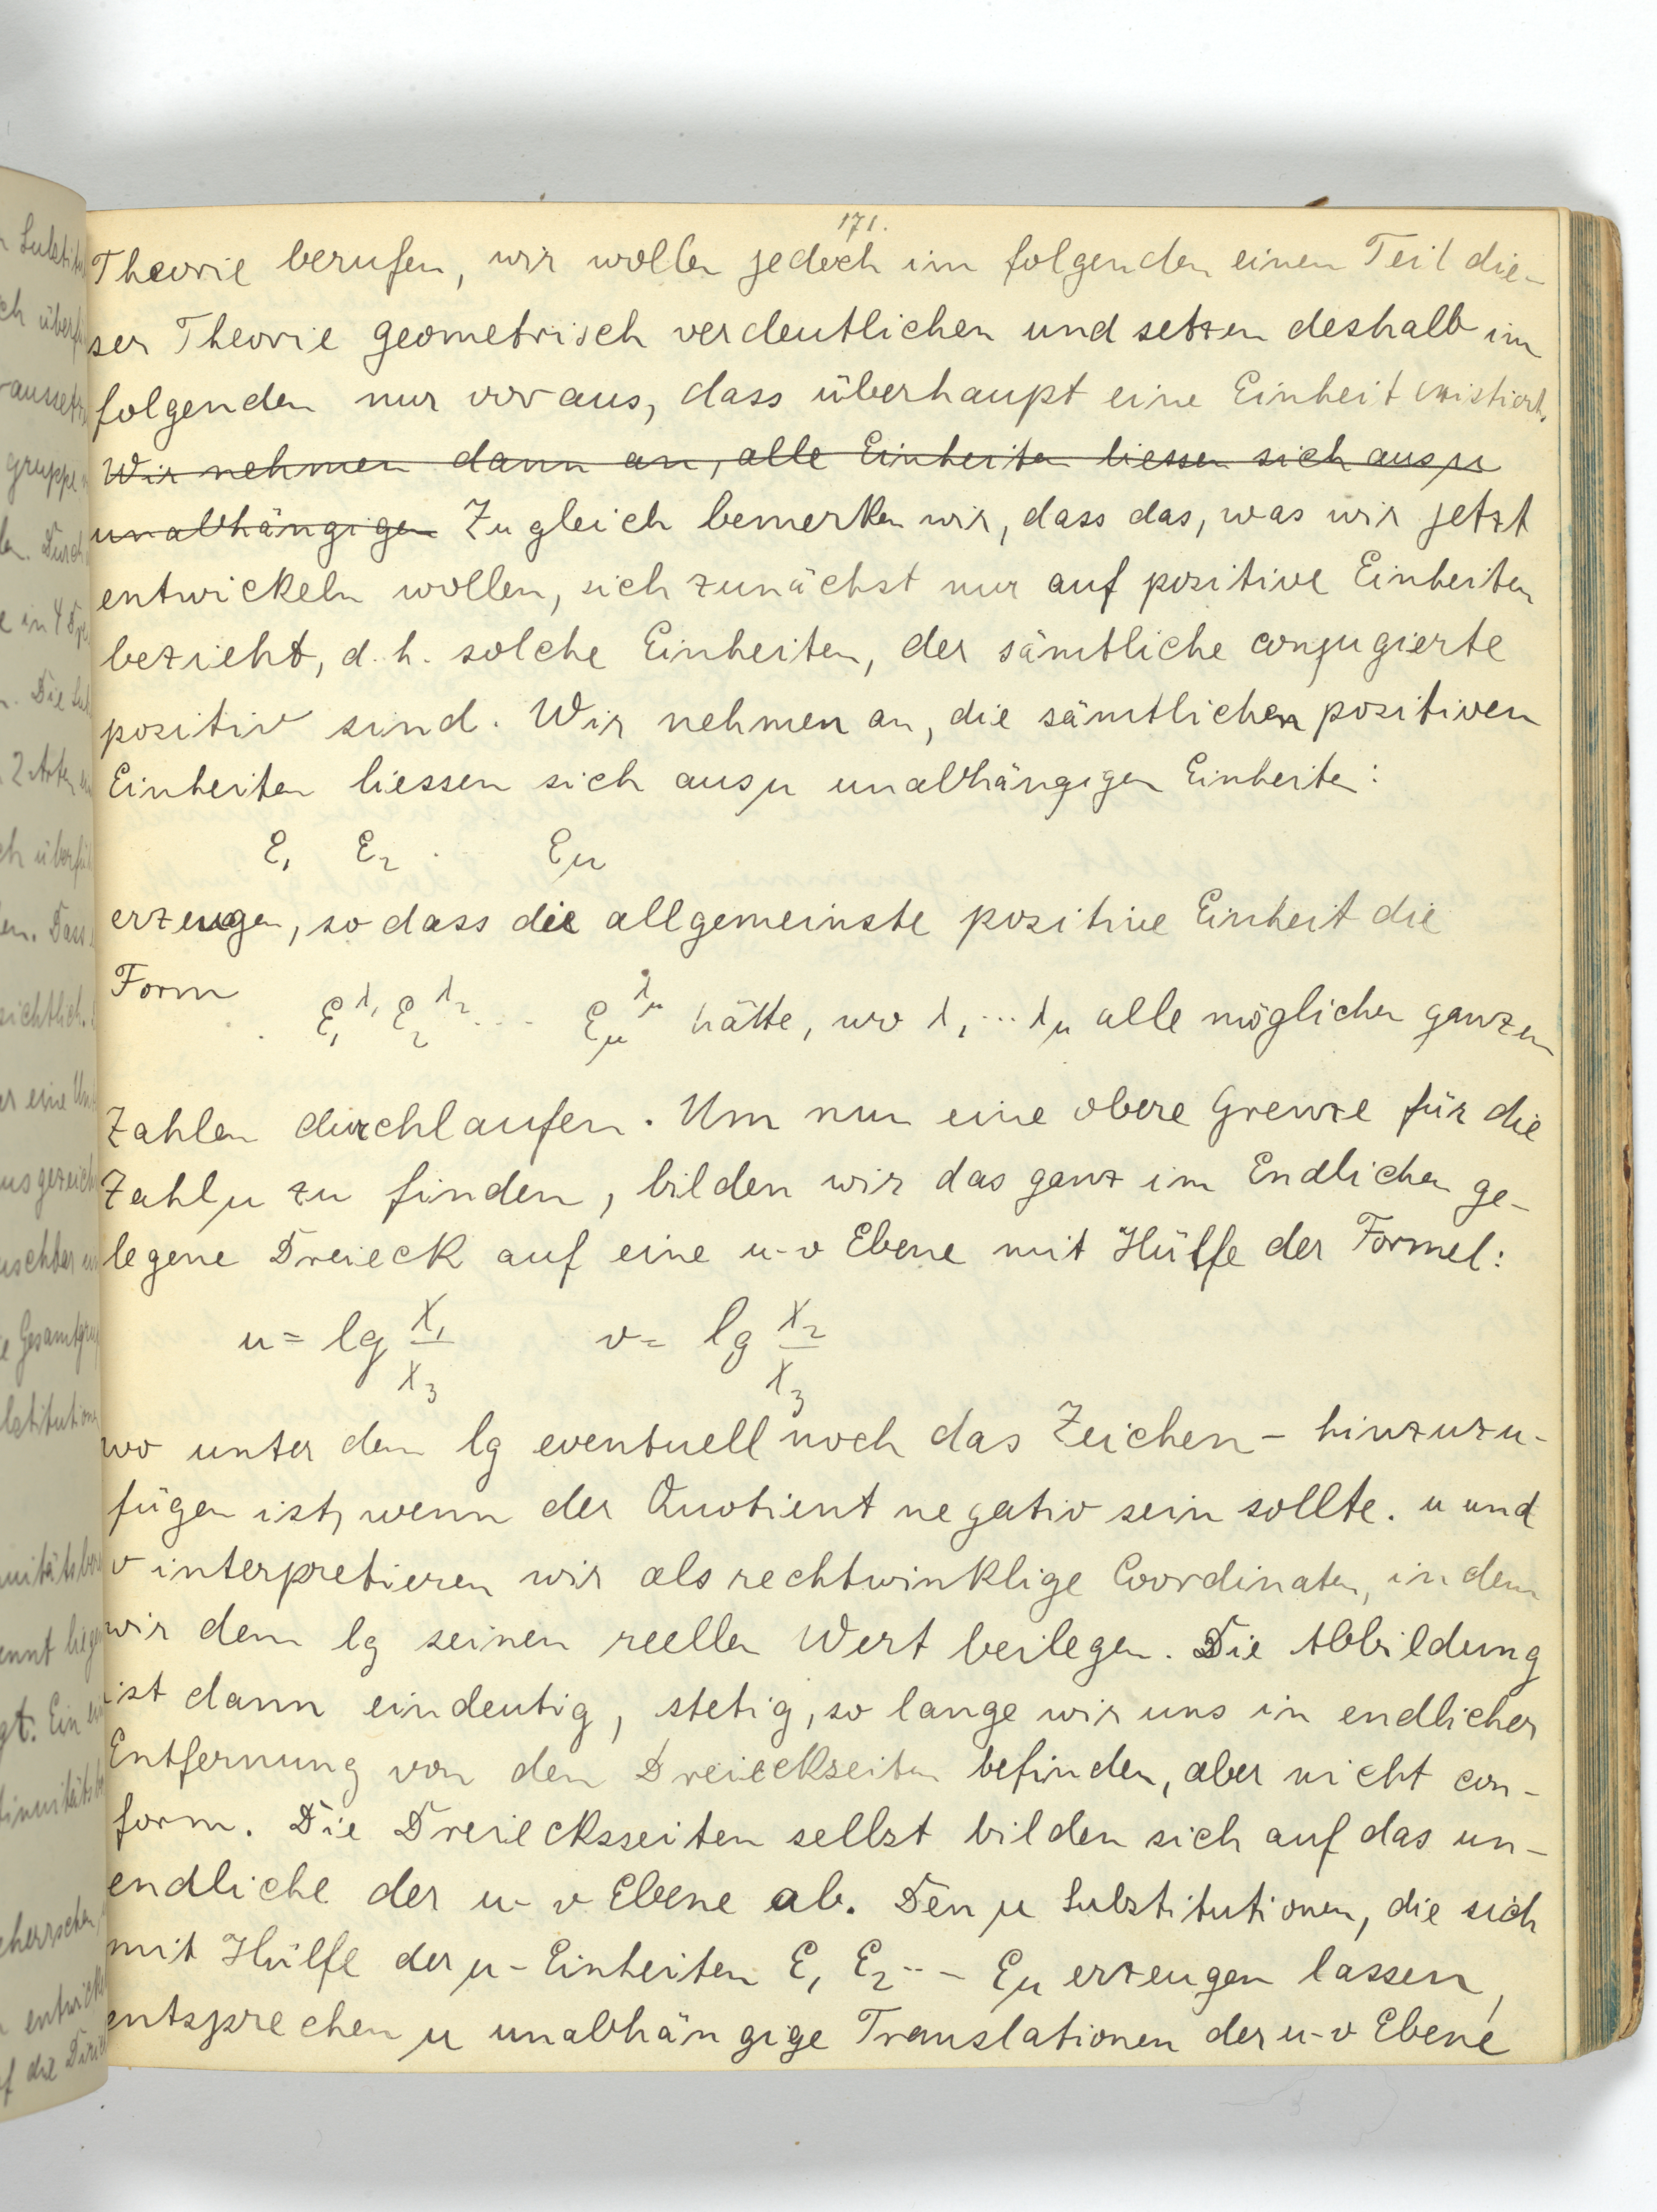 171.
Theorie berufen, wir wollen jedoch im folgenden einen Teil die-
ser Theorie geometrisch verdeutlichen und setzen deshalb im
folgenden nur voraus, dass überhaupt eine Einheit existiert.
Wir nehmen dann an, alle Einheiten liessen sich aus μ
unabhängigen Zugleich bemerken wir, dass das, was wir jetzt
entwickeln wollen, sich zunächst nur auf positive Einheiten
bezieht, d.h. solche Einheiten, der sämtliche conjugierte
positiv sind. Wir nehmen an, die sämtlichen positiven
Einheiten liessen sich aus μ unabhängigen Einheiten:
ε₁ ε₂ .. ε_μ
erzeugen, so dass die allgemeinste positive Einheit die
Form ε₁^λ₁ ε₂^λ₂ ... ε_μ^λ_μ hätte, wo λ₁ ... λ_μ alle möglichen ganzen
Zahlen durchlaufen. Um nun eine obere Grenze für die
Zahl μ zu finden, bilden wir das ganz im Endlichen ge-
legene Dreieck auf eine u-v Ebene mit Hülfe der Formel:
u = lg x₁/x₃ v = lg x₂/x₃
wo unter dem lg eventuell noch das Zeichen – hinzuzu-
fügen ist, wenn der Quotient negativ sein sollte. u und
v interpretieren wir als rechtwinklige Coordinaten, indem
wir dem lg seinen reellen Wert beilegen. Die Abbildung
ist dann eindeutig, stetig, so lange wir uns in endlicher
Entfernung von den Dreieckseiten befinden, aber nicht con-
form. Die Dreiecksseiten selbst bilden sich auf das un-
endliche der u-v Ebene ab. Den μ Substitutionen, die sich
mit Hülfe der μ-Einheiten ε₁ ε₂ ... ε_μ erzeugen lassen,
entsprechen μ unabhängige Translationen der u-v Ebene